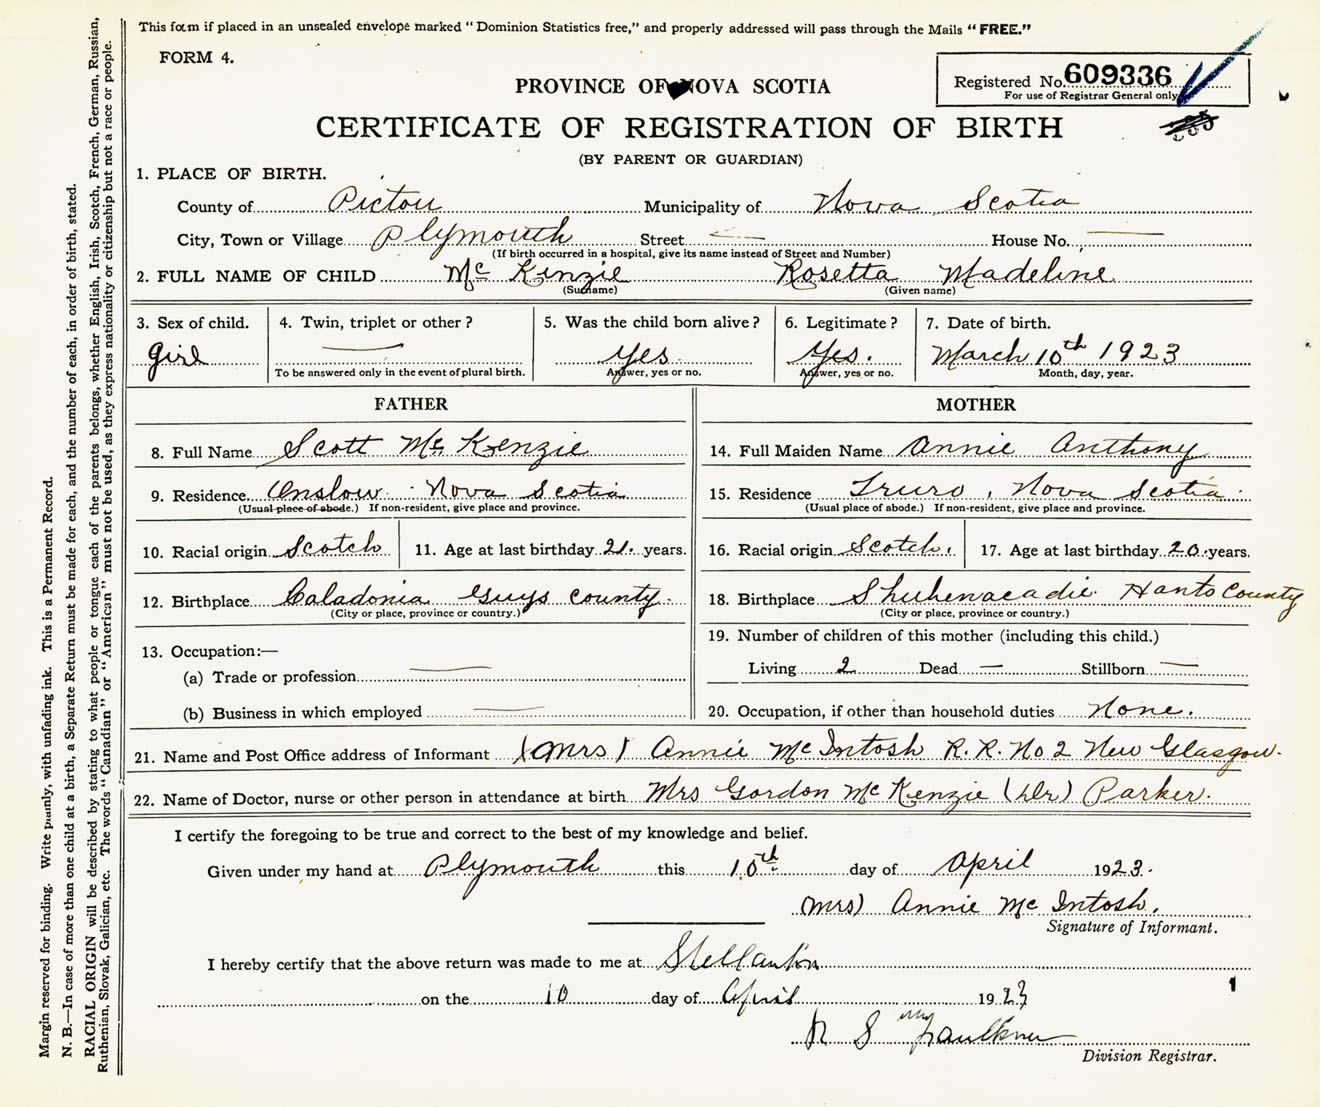 This form if placed in an unsealed envelope marked "Dominion Statistics free," and properly addressed will pass through the Mails "FREE."
FORM 4.
Registered No. 609336
For use of Registrar General only
PROVINCE OF NOVA SCOTIA
CERTIFICATE OF REGISTRATION OF BIRTH
(BY PARENT OR GUARDIAN)
1. PLACE OF BIRTH.
County of Pictou Municipality of Nova Scotia
City, Town or Village Plymouth Street — House No. —
(If birth occurred in a hospital, give its name instead of Street and Number)
2. FULL NAME OF CHILD Mc Kinzie Rosetta Madeline
(Surname) (Given name)
3. Sex of child. girl
4. Twin, triplet or other? —
To be answered only in the event of plural birth.
5. Was the child born alive? Yes
Answer, yes or no.
6. Legitimate? Yes.
Answer, yes or no.
7. Date of birth. March 10th 1923
Month, day, year.
FATHER
8. Full Name Scott Mc Kenzie
9. Residence Onslow Nova Scotia
(Usual place of abode.) If non-resident, give place and province.
10. Racial origin Scotch 11. Age at last birthday 21. years.
12. Birthplace Caladonia Guys County.
(City or place, province or country.)
13. Occupation:—
(a) Trade or profession —
(b) Business in which employed —
MOTHER
14. Full Maiden Name Annie Anthony
15. Residence Truro, Nova Scotia.
(Usual place of abode.) If non-resident, give place and province.
16. Racial origin Scotch. 17. Age at last birthday 20. years.
18. Birthplace Shubenacadie Hants County
(City or place, province or country.)
19. Number of children of this mother (including this child.)
Living 2 Dead — Stillborn —
20. Occupation, if other than household duties None.
21. Name and Post Office address of Informant (Mrs) Annie McIntosh R.R. No 2 New Glasgow.
22. Name of Doctor, nurse or other person in attendance at birth Mrs Gordon McKenzie (Dr) Parker.
I certify the foregoing to be true and correct to the best of my knowledge and belief.
Given under my hand at Plymouth this 10th day of April 1923.
(Mrs) Annie Mc Intosh.
Signature of Informant.
I hereby certify that the above return was made to me at Stellarton
on the 10 day of April 1923
Faulkner
Division Registrar.
1
Margin reserved for binding. Write plainly, with unfading ink. This is a Permanent Record.
N. B.—In case of more than one child at a birth, a Separate Return must be made for each, and the number of each, in order of birth, stated.
RACIAL ORIGIN will be described by stating to what people or tongue each of the parents belongs, whether English, Irish, Scotch, French, German, Russian,
Ruthenian, Slovak, Galician, etc. The words "Canadian" or "American" must not be used, as they express nationality or citizenship but not a race or people.